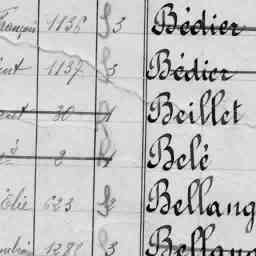 François 1136 S3 Bédier
1137 S3 Bédier
30 Beillet
2 Belé
Élie 623 S2 Bellang
1286 S3 Bellang